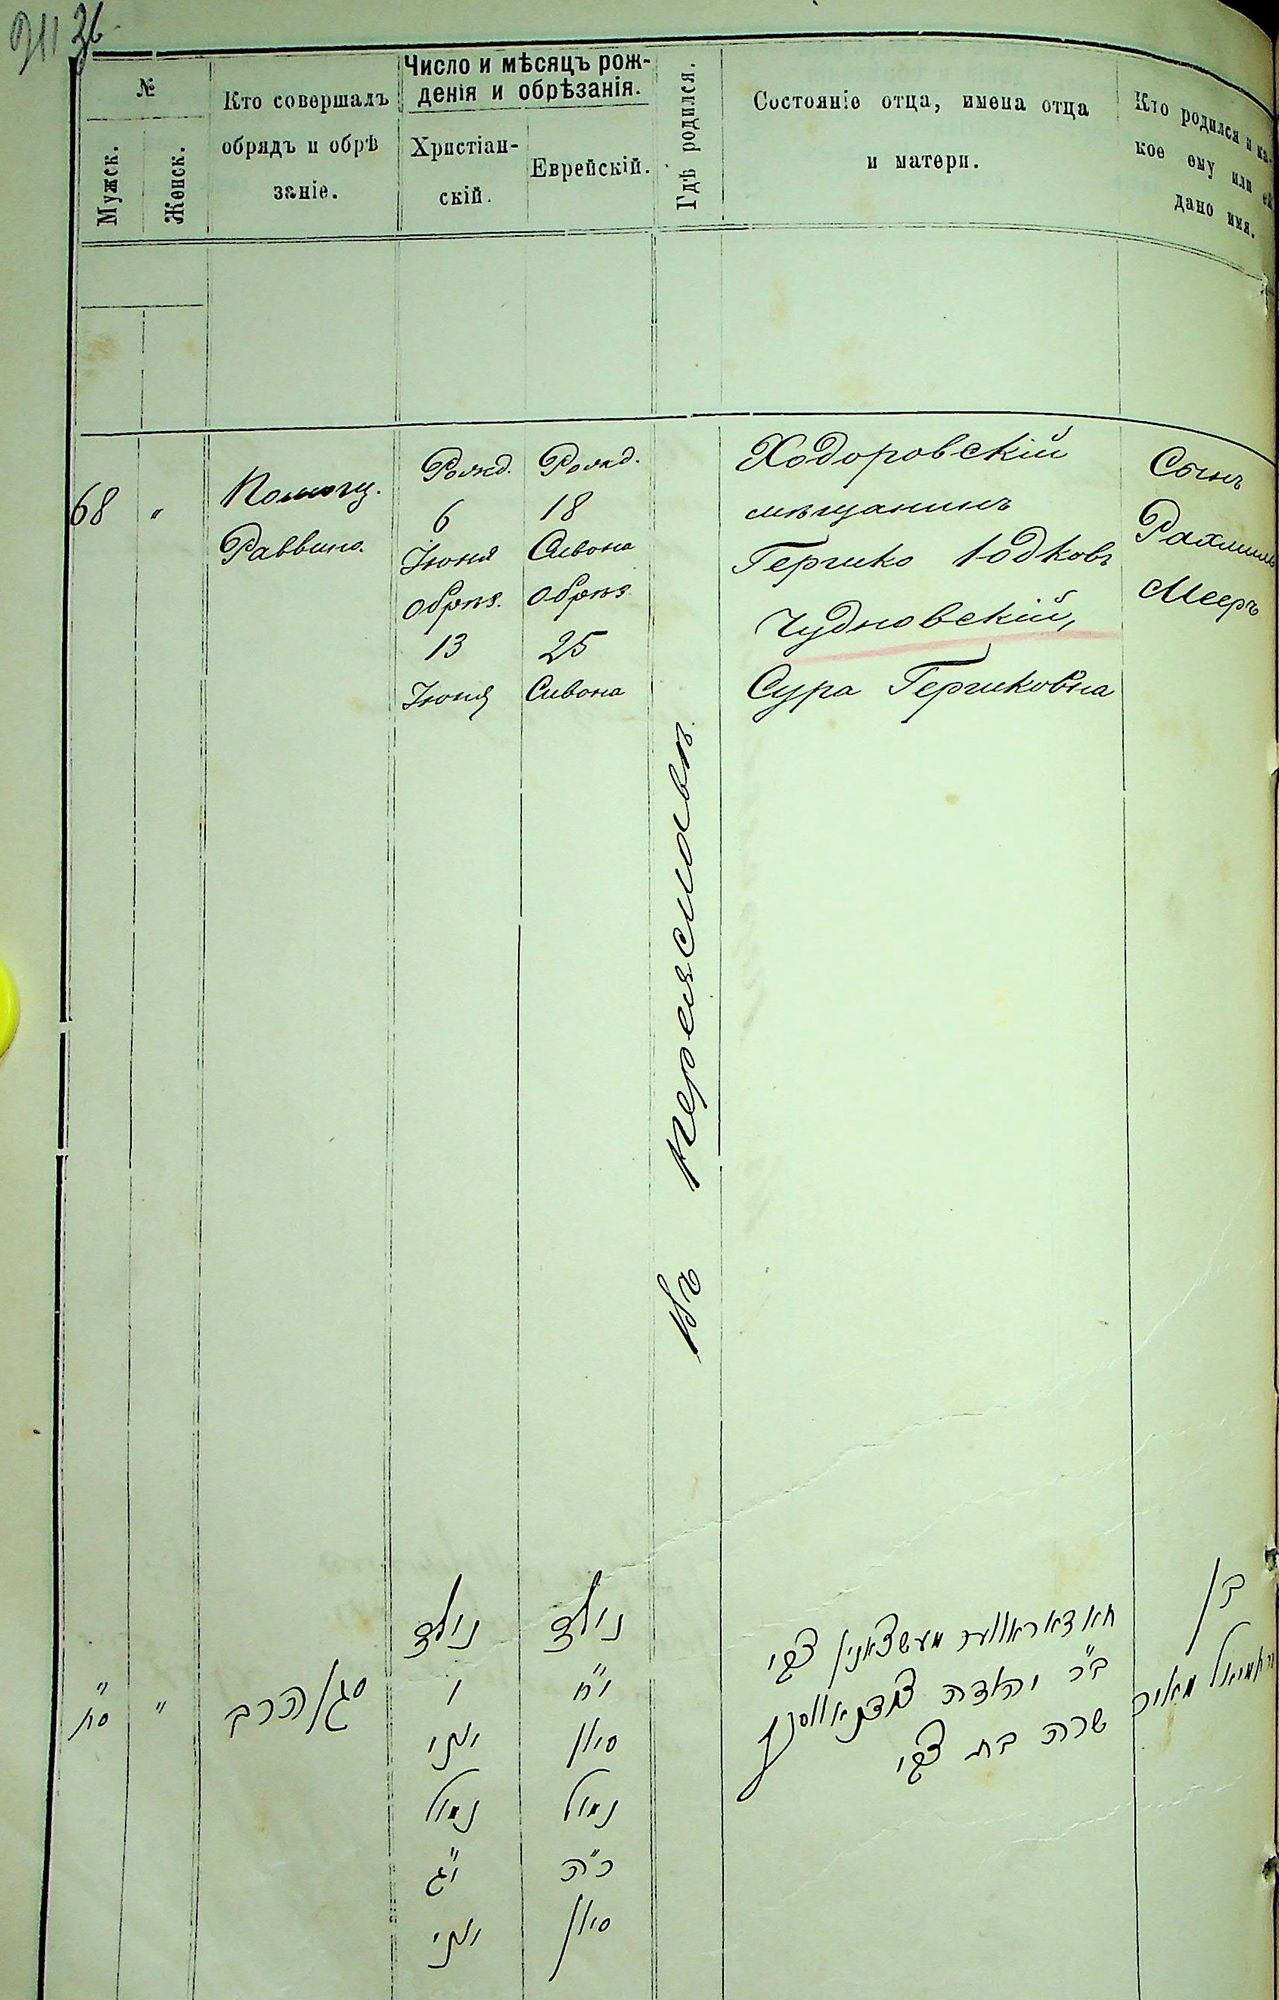 36
№
Мужск.
Женск.
Кто совершалъ
обрядъ и обрѣ
заніе.
Число и мѣсяцъ рож-
денія и обрѣзанія.
Христіан-
скій.
Еврейскій.
Гдѣ родился.
Состояніе отца, имена отца
и матери.
Кто родился и ка-
кое ему или ей
дано имя.
68
"
Помощ.
Раввина
Рожд.
6
Іюня
Обрѣз.
13
Іюня
Рожд.
18
Сивона
Обрѣз.
25
Сивона
въ Переяславѣ.
Ходоровскій
мѣщанинъ
Гершко Іодковъ
Чудновскій,
Сура Гершковна
Сынъ
Рахмиль
Мееръ
ס"ח
"
סגן הרב
נולד
ו
יוני
נמול
י"ג
יוני
נולד
י"ח
סיון
נמול
כ"ה
סיון
מעשצאנין צבי
ב"ר יהודה
שרה בת צבי
בן
מאיר